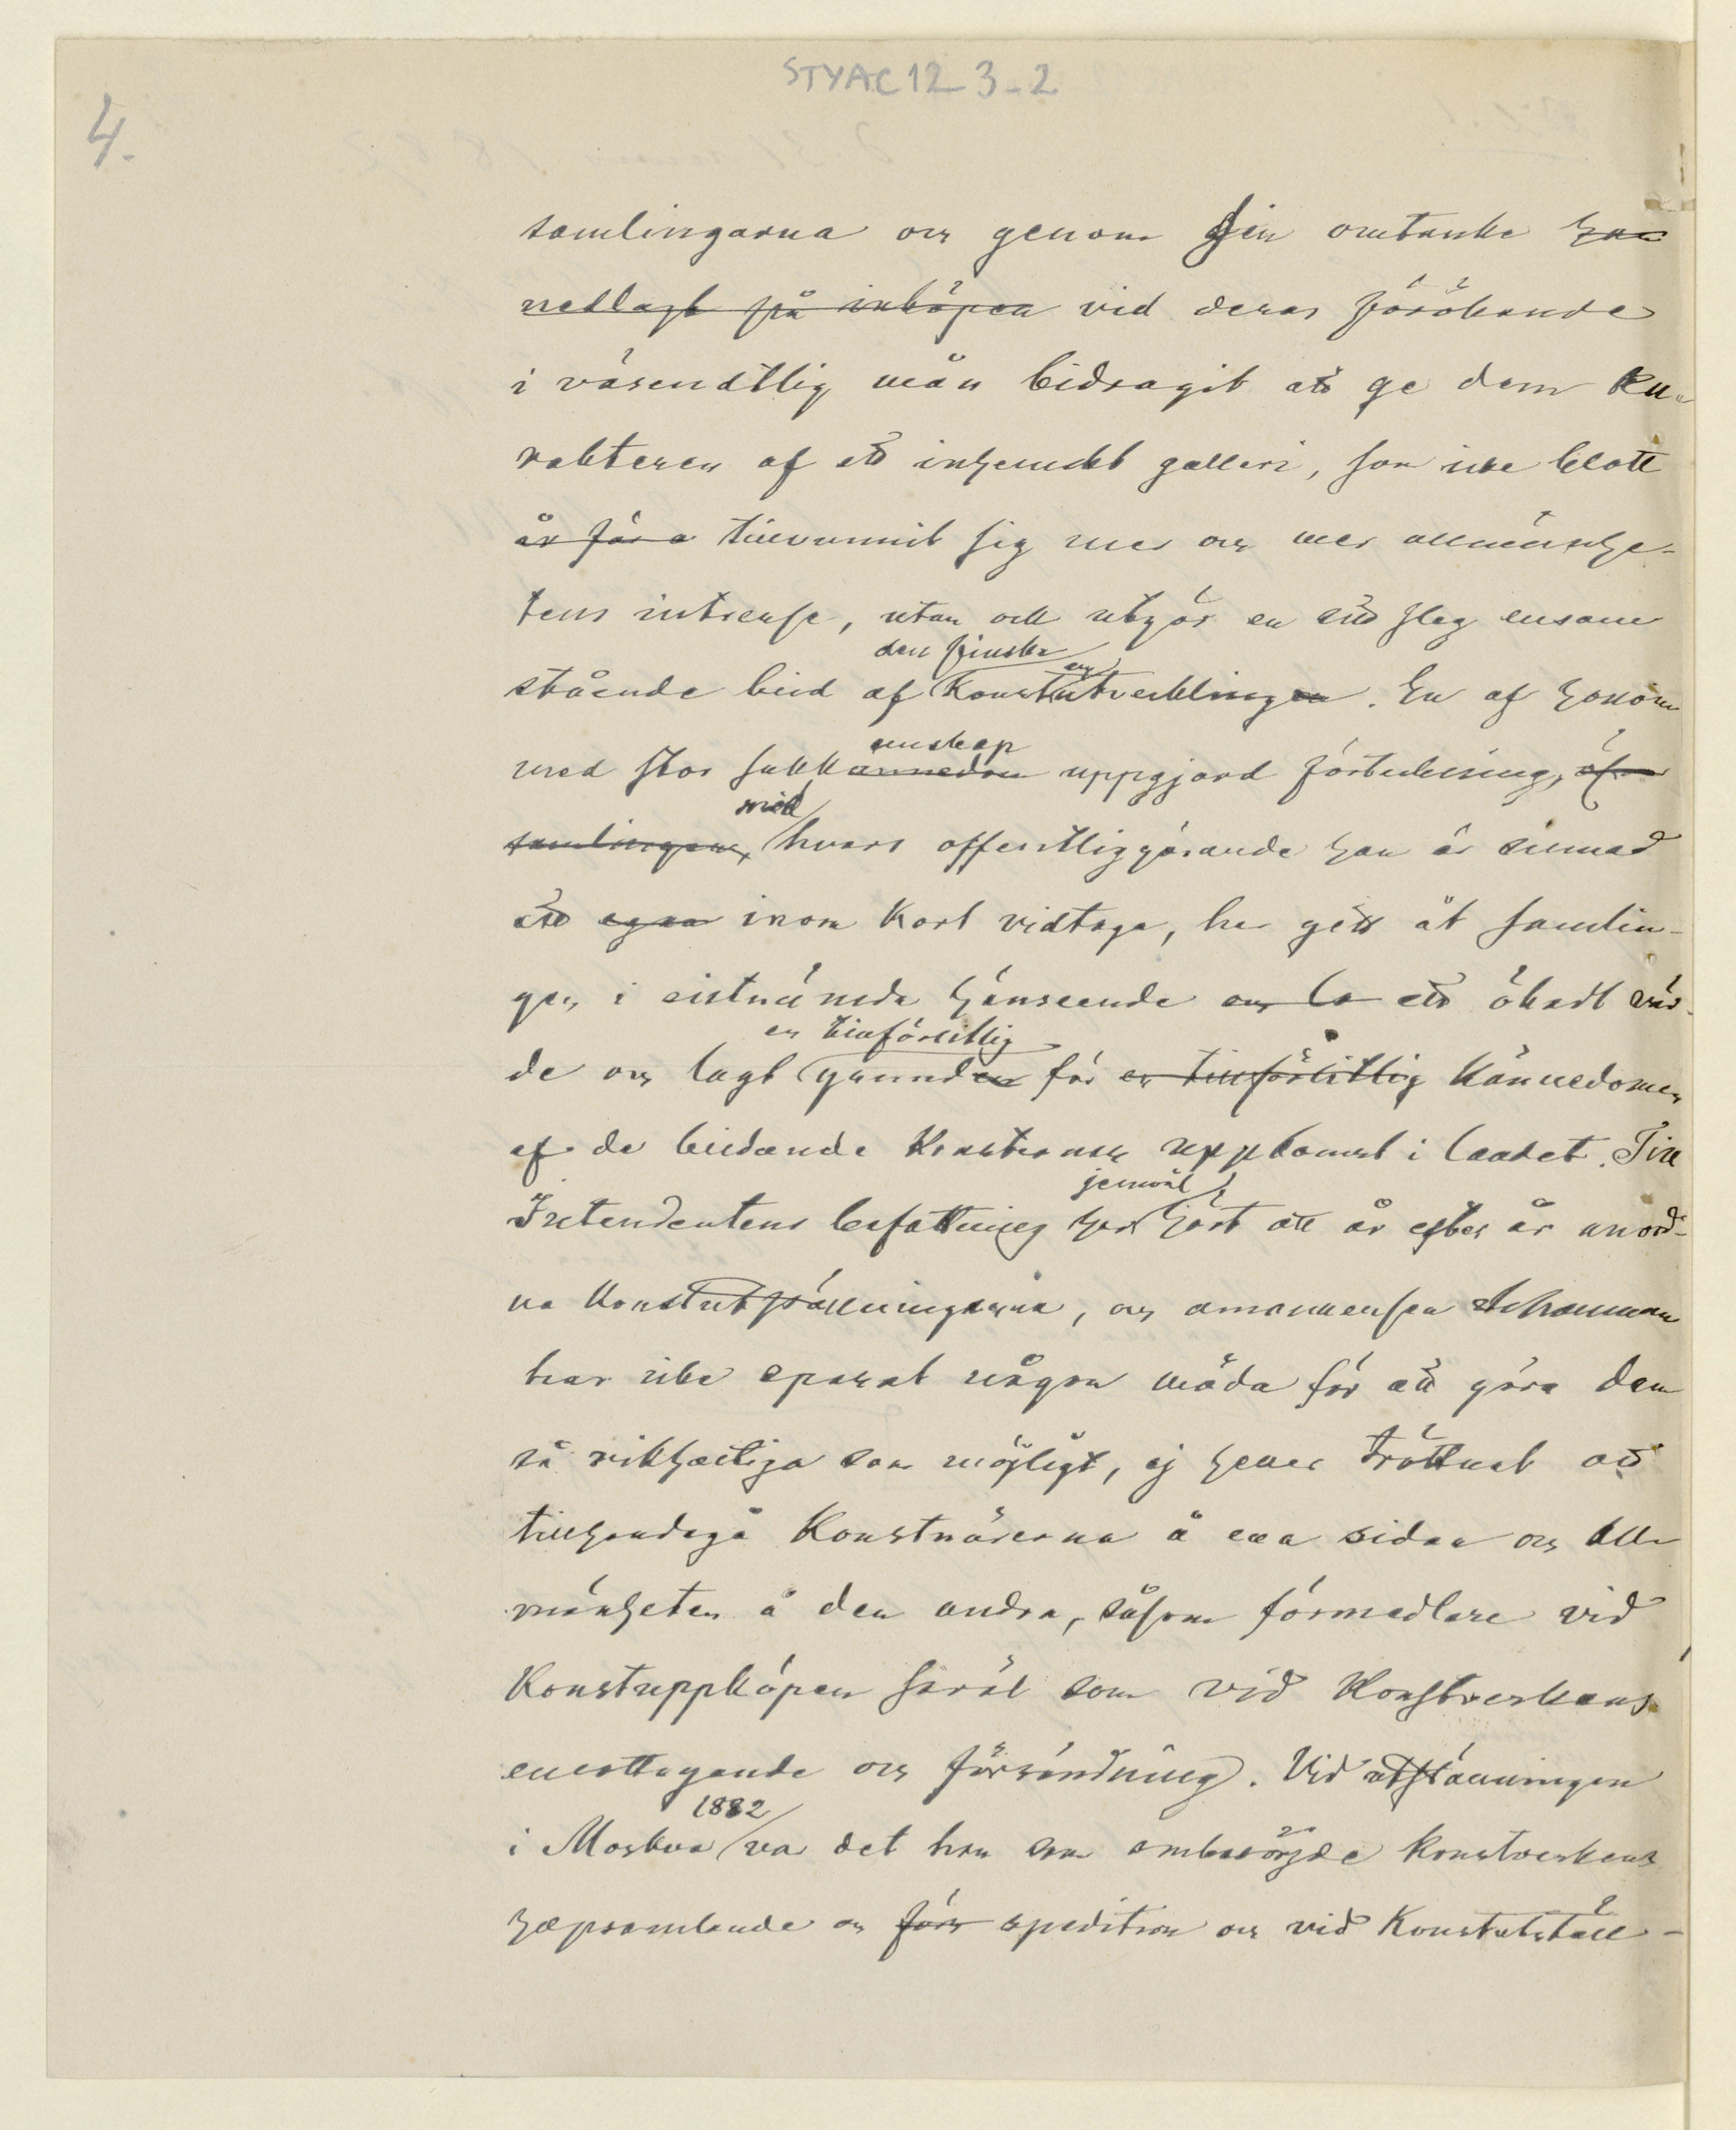 STYAC12_3-2
4.
samlingarna och genom sin omtanke han
nedlagt på inköpen vid deras förökande
i väsendtlig mån bidragit att ge dem Ka-
rakteren af ett inhemskt galleri, som icke blott
är för a tillvunnit sig mer och mer allmänhe-
tens intresse, utan ock utgör en i sitt slag ensam
den finska
stående bild af Konstutvecklingen. En af honom
enskap
med stor sakkännedom uppgjord förteckning, öfver
med
samlingen, hvars offentliggörande han är sinnad
att egna inom Kort vidtaga, har gett åt samlin-
gen i sistnämnda hänseende ett ökadt vär-
en tillförlitlig
de och lagt grunden för en tillförlitlig Kännedomen
af de bildande Konsternas uppkomst i landet. Till
jemväl
Intendentens befattning har hört att år efter år anord-
na Konstutställningarna, och amanuensen Schauman
har icke sparat någon möda för att göra dem
så rikhaltiga som möjligt, ej heller tröttnat att
tillhandagå Konstnärerna å ena sidan och all-
mänheten å den andra, såsom förmedlare vid
Konstuppköpen såväl som vid Konstverkens
emottagande och försändning. Vid utställningen
1882
i Moskva var det han som ombesörjde konstverkens
hopsamlande och förs spedition och vid Konstutställ-